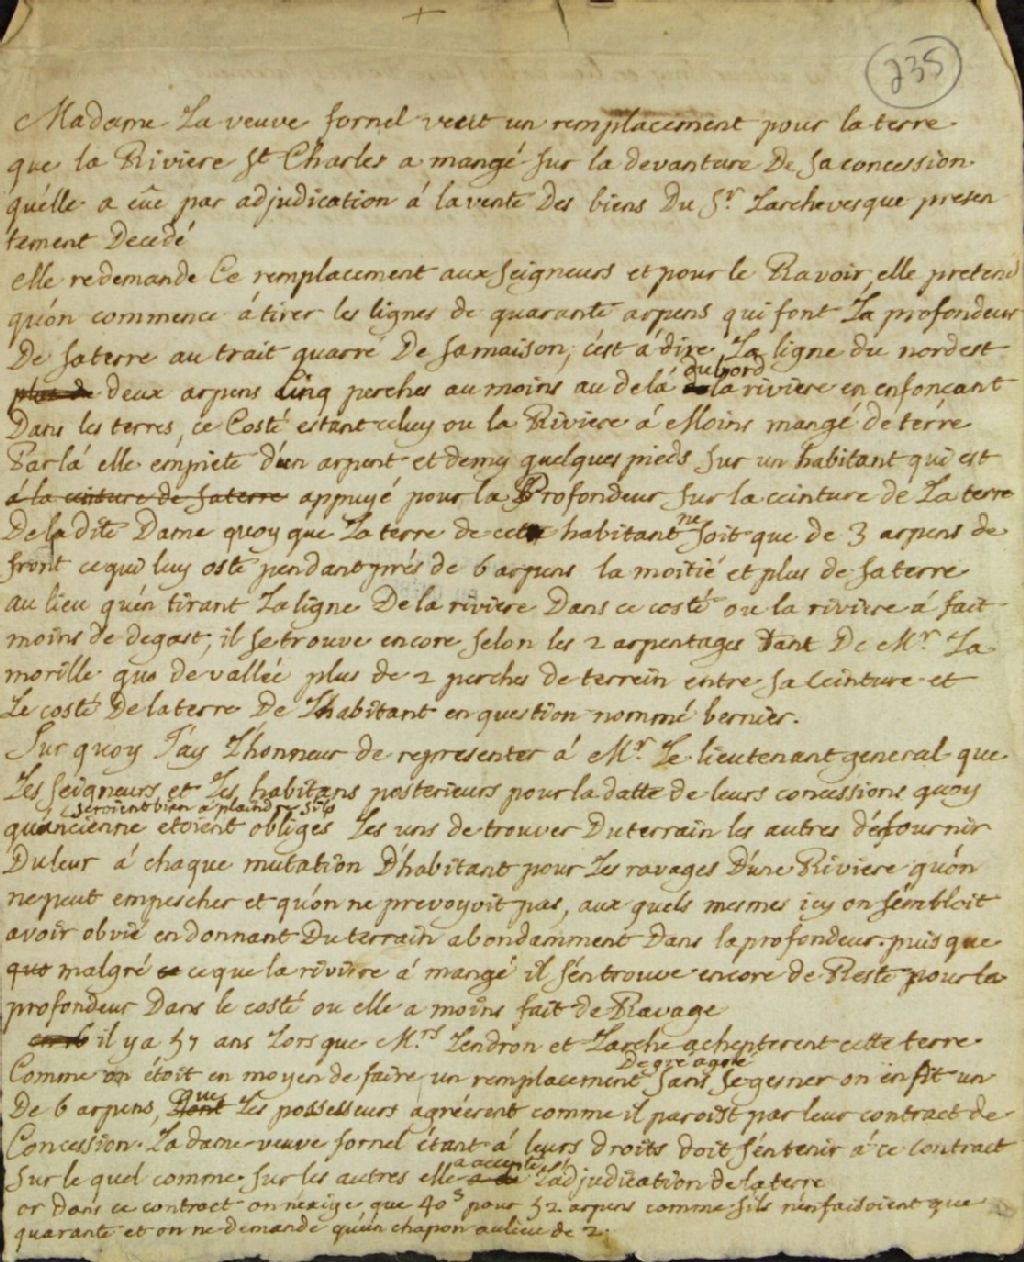 235
Madame La veuve fornel veut un remplacement pour la terre
que la Riviere St Charles a mangé sur la devanture De sa concession
qu'elle a eüe par adjudication á la vente Des biens Du Sr. Larchevesque presen
tement Decedé
elle redemande Ce remplacement aux seigneurs et pour le Ravoir, elle pretend
qu'on commence á tirer les lignes de quarante arpens qui font La profondeur
De sa terre au trait quarré De sa maison, c'est á dire, La ligne du nord est
plus de deux arpens cinq perches au moins au delá du bord la riviere en enfonçant
Dans les terres, ce Costé estant celuy ou la Riviere á Moins mangé de terre
Par lá elle empiete d'un arpent et demy quelques pieds sur un habitant qui est
á la ceinture de sa terre appuyé pour la Profondeur sur la ceinture de La terre
De la dite Dame quoy que La terre de cet habitant ne soit que de 3 arpens de
front ce qui luy oste pendant prés de 6 arpens la moitié et plus de sa terre
au lieu qu'en tirant La ligne De la riviere Dans ce costé ou la riviere á fait
moins de degast, il se trouve encore selon les 2 arpentages tant De Mr. La
morille que de vallée plus de 2 perches de terrein entre sa Ceinture et
Le costé De la terre De L'habitant en question nommé bernier.
Sur quoy J'ay L'honneur de representer á Mr. Le lieutenant general que
Les seigneurs et Les habitans posterieurs pour la datte de leurs concessions quoy
qu'ancienne seroient bien a plaindre s'ils etoient obligés Les uns de trouver Du terrain les autres d'en fournir
Du leur á chaque mutation D'habitant pour Les ravages D'une Riviere qu'on
ne peut empescher et qu'on ne prevoyoit pas, aux quels mesmes icy on sembloit
avoir obvié en donnant Du terrain abondamment Dans la profondeur. puis que
que malgré ce ce que la riviere á mangé il s'en trouve encore de Reste pour la
profondeur Dans le costé ou elle a moins fait de Ravage
il y a 57 ans Lors que Mrs. Lendron et Larche acheptèrent cette terre
Comme on étoit en moyen de faire un remplacement De gré agré sans se gesner on en fit un
De 6 arpens, Dont que Les possesseurs agréerent comme il paroist par leur contract de
Concession. La dame veuve fornel étant á leurs droits doit s'en tenir á ce contract
Sur le quel comme sur les autres elle a accepté L'adjudication de la terre
or dans ce contract on n'exige que 40 s pour 52 arpens comme s'ils n'en faisoient que
quarante et on ne demande qu'un chapon au lieu de 2.